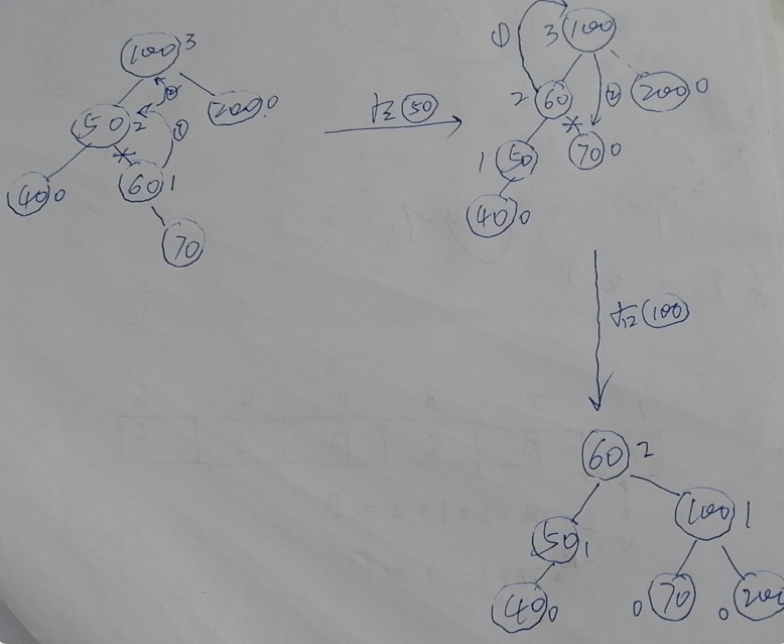 100 3
50 2
②
①
200 0
40 0
60 1
70
50
①
3 100
2 60
②
200 0
1 50
70 0
40 0
100
60 2
50 1
100 1
40 0
0 70
0 200